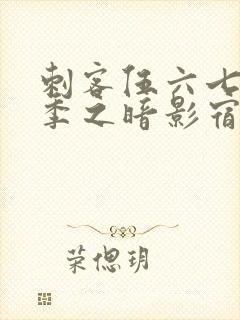 刺客伍六七
季之暗影宿
荣偲玥